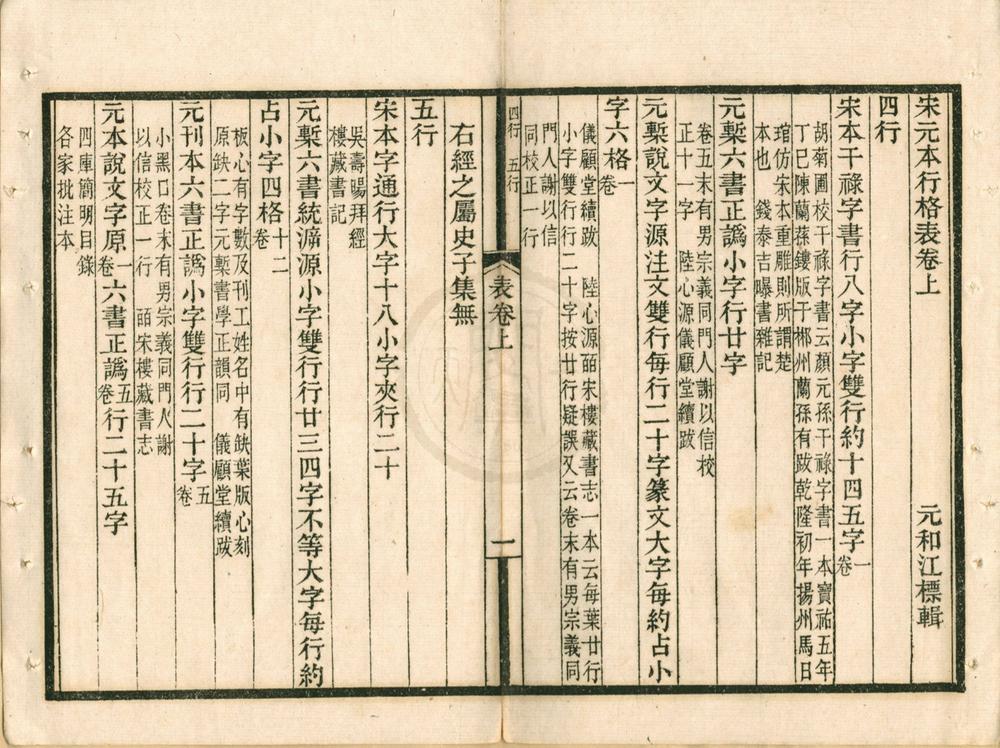 宋元本行格表卷上
元和江標輯
四行
宋本干祿字書行八字小字雙行約十四五字一卷
胡菊圃校干祿字書云顏元孫干祿字書一本寶祐五年
丁巳陳蘭蓀鏤版于郴州蘭孫有跋乾隆初年揚州馬日
琯仿宋本重雕則所謂楚
本也　錢泰吉曝書雜記
元槧六書正譌小字行廿字
卷五末有男宗義同門人謝以信校
正十一字　陸心源儀顧堂續跋
元槧說文字源注文雙行每行二十字篆文大字每約占小
字六格一卷
儀顧堂續跋　陸心源皕宋樓藏書志一本云每葉廿行
小字雙行行二十字按廿行疑誤又云卷末有男宗義同
門人謝以信
同校正一行
四行　五行
表卷上
一
右經之屬史子集無
五行
宋本字通行大字十八小字夾行二十
吳壽暘拜經
樓藏書記
元槧六書統泝源小字雙行行廿三四字不等大字每行約
占小字四格十二卷
板心有字數及刊工姓名中有缺葉版心刻
原缺二字元槧書學正韻同　儀顧堂續跋
元刊本六書正譌小字雙行行二十字五卷
小黑口卷末有男宗義同門人謝
以信校正一行　皕宋樓藏書志
元本說文字原一卷六書正譌五卷行二十五字
四庫簡明目錄
各家批注本